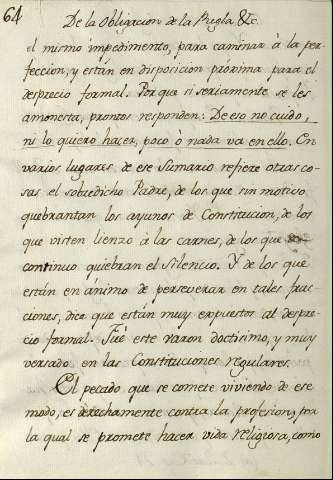 64
De la Obligacion de la Regla, &c.
el mismo impedimento, para caminar à la per-
feccion, y están en disposicion próxima para el
desprecio formal. Por que si seriamente se les
amonesta, prontos responden: De eso no cuido,
ni lo quiero hacer, poco ò nada va en ello. En
varios lugares de ese Sumario refiere otras co-
sas el sobredicho Padre, de los que sin motivo
quebrantan los ayunos de Constitucion, de los
que visten lienzo à las carnes, de los que de
continuo quiebran el Silencio. Y de los que
están en ánimo de perseverar en tales frac-
ciones, dice que están muy expuestos al despre-
cio formal. Fué este varon doctisimo, y muy
versado en las Constituciones regulares.
El pecado que se comete viviendo de ese
modo, es derechamente contra la profesion, por
la qual se promete hacer vida religiosa, como